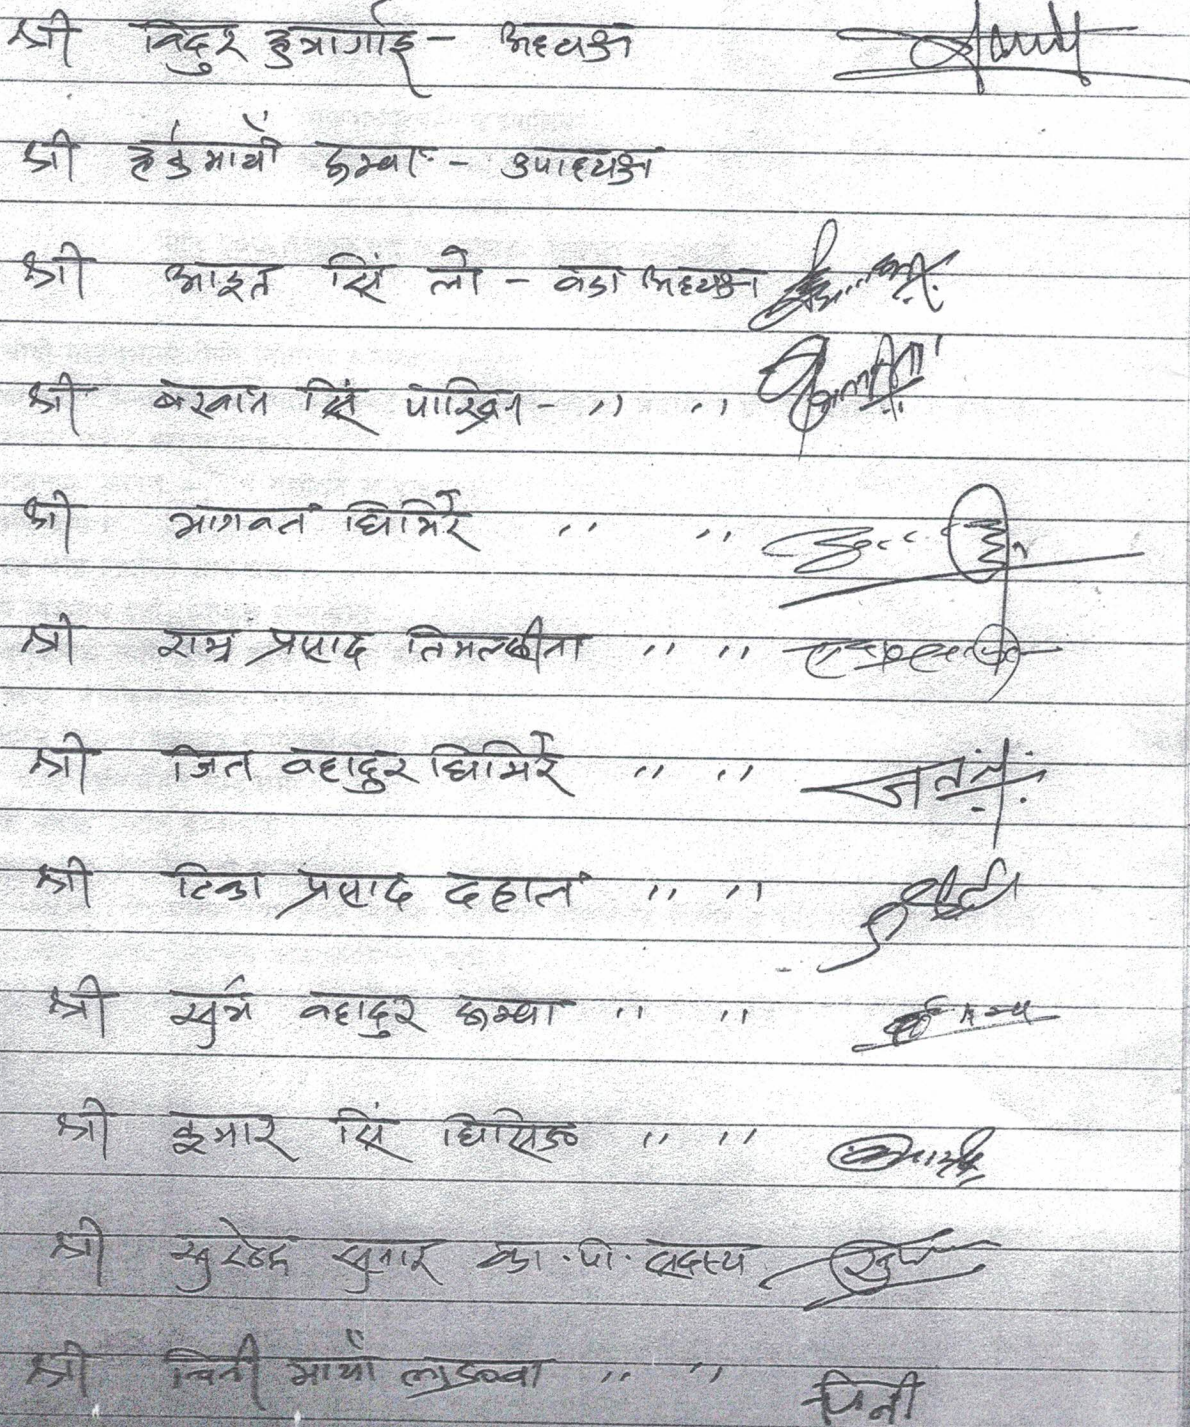 श्री विदुर हुमागाई - अध्यक्ष
श्री हर्कुमायाँ रूम्वा - उपाध्यक्ष
श्री आइत सिं लो - वडा अध्यक्ष
श्री वखान सिं पाख्रिन - ,, ,,
श्री भागवत घिमिरे ,, ,,
श्री राम प्रसाद तिमल्सीना ,, ,,
श्री जित वहादुर घिमिरे ,, ,,
श्री टिका प्रसाद दहाल ,, ,,
श्री सुर्य वहादुर रूम्वा ,, ,,
श्री कुमार सिं घिसिङ ,, ,,
श्री सुरेन्द्र सुनार का.पा. सदस्य
श्री चिनी मायाँ लुङवा ,, ,, चिनी